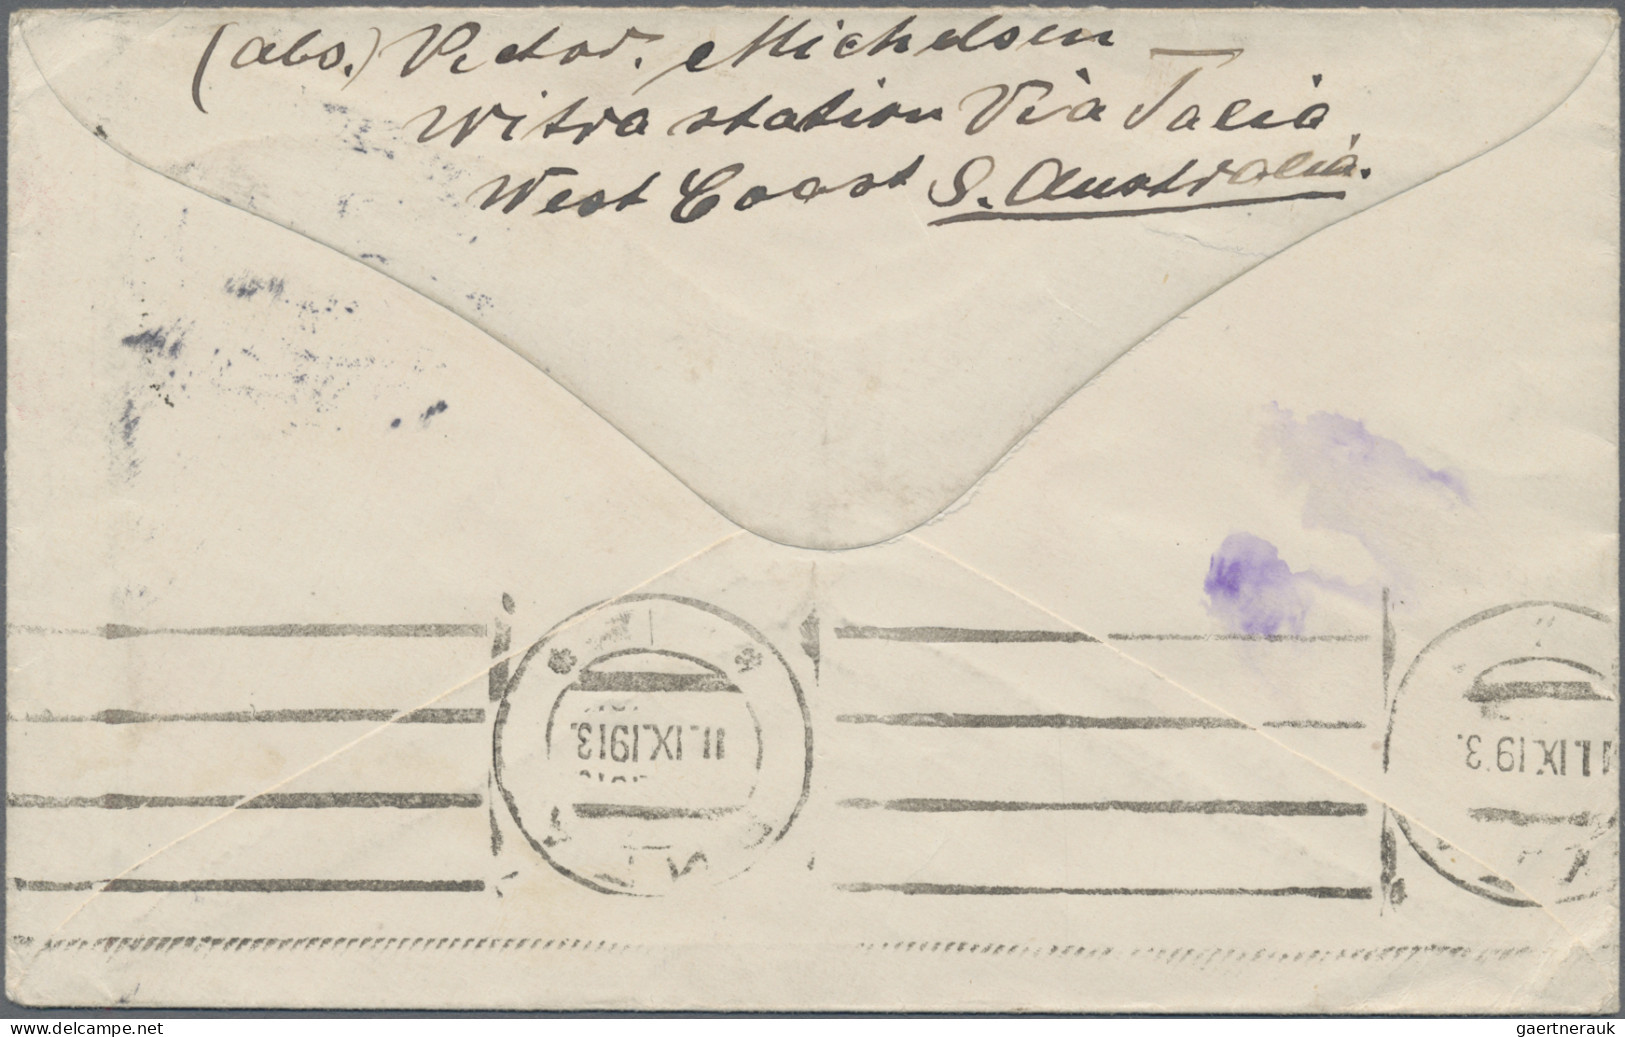 (abs.) Victor. Michelsen
Witra station Vià Talia.
West Coast S. Australia.
11.IX.1913.
11.IX.19 3.
www.delcampe.net
gaertnerauk